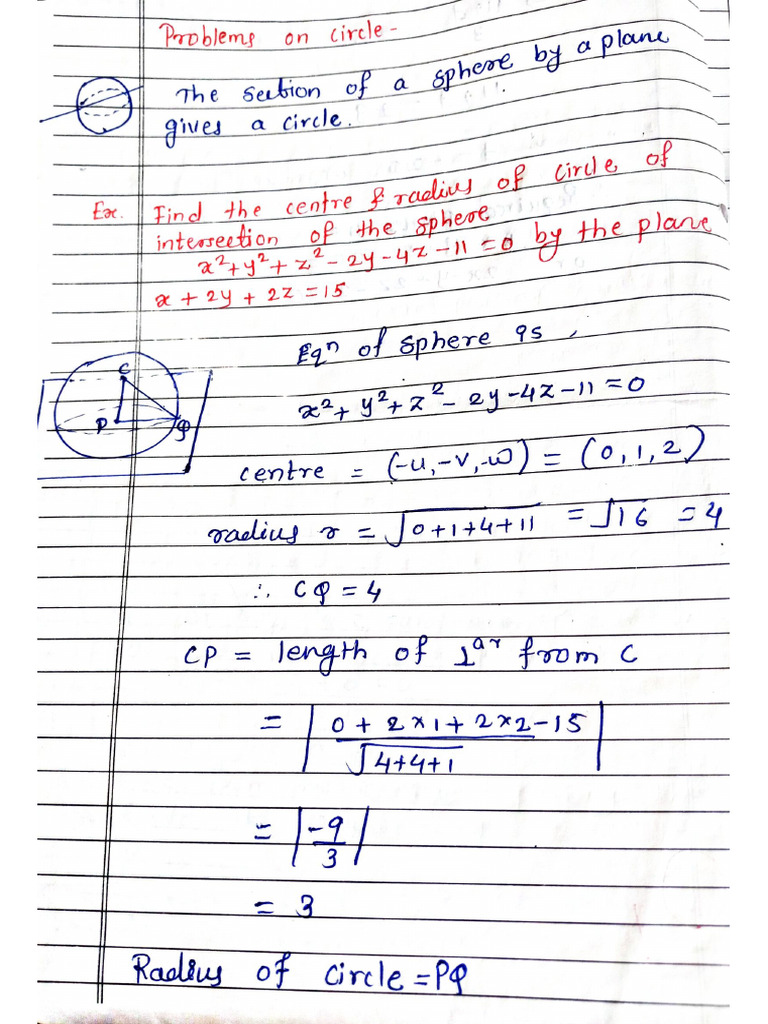 Problems on circle-
The section of a sphere by a plane
gives a circle.
Ex. Find the centre & radius of circle of
intersection of the sphere
x²+y²+z²-2y-4z-11=0 by the plane
x+2y+2z=15
Eqⁿ of sphere is,
x²+y²+z²-2y-4z-11=0
C
P
Q
centre = (-u,-v,-w) = (0,1,2)
radius r = √0+1+4+11 = √16 = 4
∴ CQ = 4
CP = length of ⊥ᵃʳ from C
= |0+2×1+2×2-15 / √4+4+1|
= |-9/3|
= 3
Radius of circle = PQ